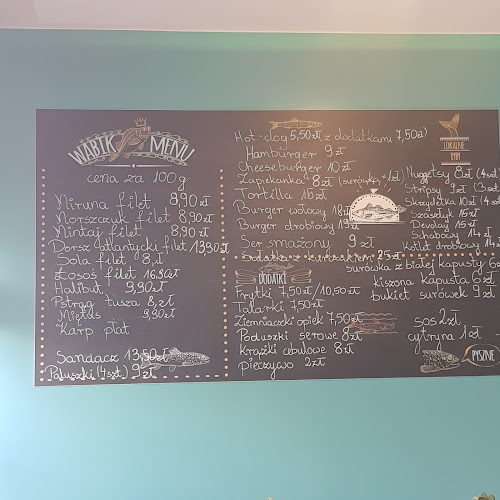 WABIK MENU
cena za 100g
Miruna filet 8,90 zł
Morszczuk filet 8,90 zł
Mintaj filet 8,90 zł
Dorsz atlantycki filet 13,90 zł
Sola filet 8,zł
Łosoś filet 16,90 zł
Halibut 9,90 zł
Pstrąg tusza 8,zł
Miętus 9,90 zł
Karp płat
Sandacz 13,50 zł
Paluszki (4szt) 9 zł
Hot-dog 5,50 zł z dodatkami 7,50 zł
Hamburger 9 zł
Cheeseburger 10 zł
Zapiekanka 8 zł (surówka + 1 zł)
Tortilla 16 zł
Burger wołowy 18 zł
Burger drobiowy 19 zł
Ser smażony 9 zł
25 zł
LOKALNE RYBY
Nuggetsy 8 zł (4 szt
Stripsy 9 zł (3 szt
Skrzydełka 10 zł (4 szt
Szaszłyk 15 zł
Devolay 15 zł
Schabowy 14 zł
Kotlet drobiowy 14 zł
DODATKI
Frytki 7,50 zł / 10,50 zł
Talarki 7,50 zł
Ziemniaczki opiek 7,50 zł
Poduszki serowe 8 zł
Krążki cebulowe 8 zł
pieczywo 2 zł
surówka z białej kapusty 6
kiszona kapusta 6 zł
bukiet surówek 9 zł
sos 2 zł
cytryna 1 zł
PYSZNE